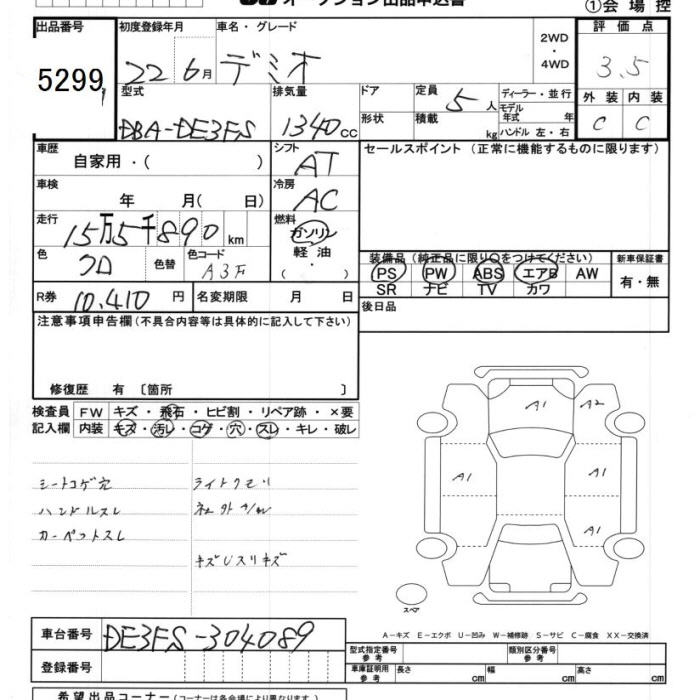 オークション出品申込書
①会場控
出品番号 初度登録年月 車名・グレード 2WD・4WD 評価点
5299 22 6月 デミオ 3.5
型式 排気量 ドア 定員 5人 ディーラー・並行 外装 内装
DBA-DE3FS 1340cc 形状 積載 kg モデル年式 年 ハンドル 左・右 C C
車歴 自家用・( ) シフト AT セールスポイント(正常に機能するものに限ります)
車検 年 月( 日) 冷房 AC
走行 15万5千890km 燃料 ガソリン・軽油・( )
色 クロ 色替 色コード A3F
装備品(純正品に限り○をつけてください) 新車保証書
PS PW ABS エアB AW 有・無
SR ナビ TV カワ
R券 10,410円 名変期限 月 日 後日品
注意事項申告欄(不具合内容等は具体的に記入して下さい)
修復歴 有〔箇所 〕
検査員 FW キズ・飛石・ヒビ割・リペア跡・×要
記入欄 内装 キズ・汚レ・コゲ・穴・スレ・キレ・破レ
シートコゲ穴 ライトクモリ
ハンドルスレ
カーペットスレ
キズUスリキズ
A1 A2
A1 A1
A1
スペア
A-キズ E-エクボ U-凹み W-補修跡 S-サビ C-腐食 XX-交換済
車台番号 DE3FS-304089
登録番号
型式指定番号 参考 類別区分番号 参考
車庫証明用 参考 長さ cm 幅 cm 高さ cm
希望出品コーナー(コーナーは各会場により異なります)